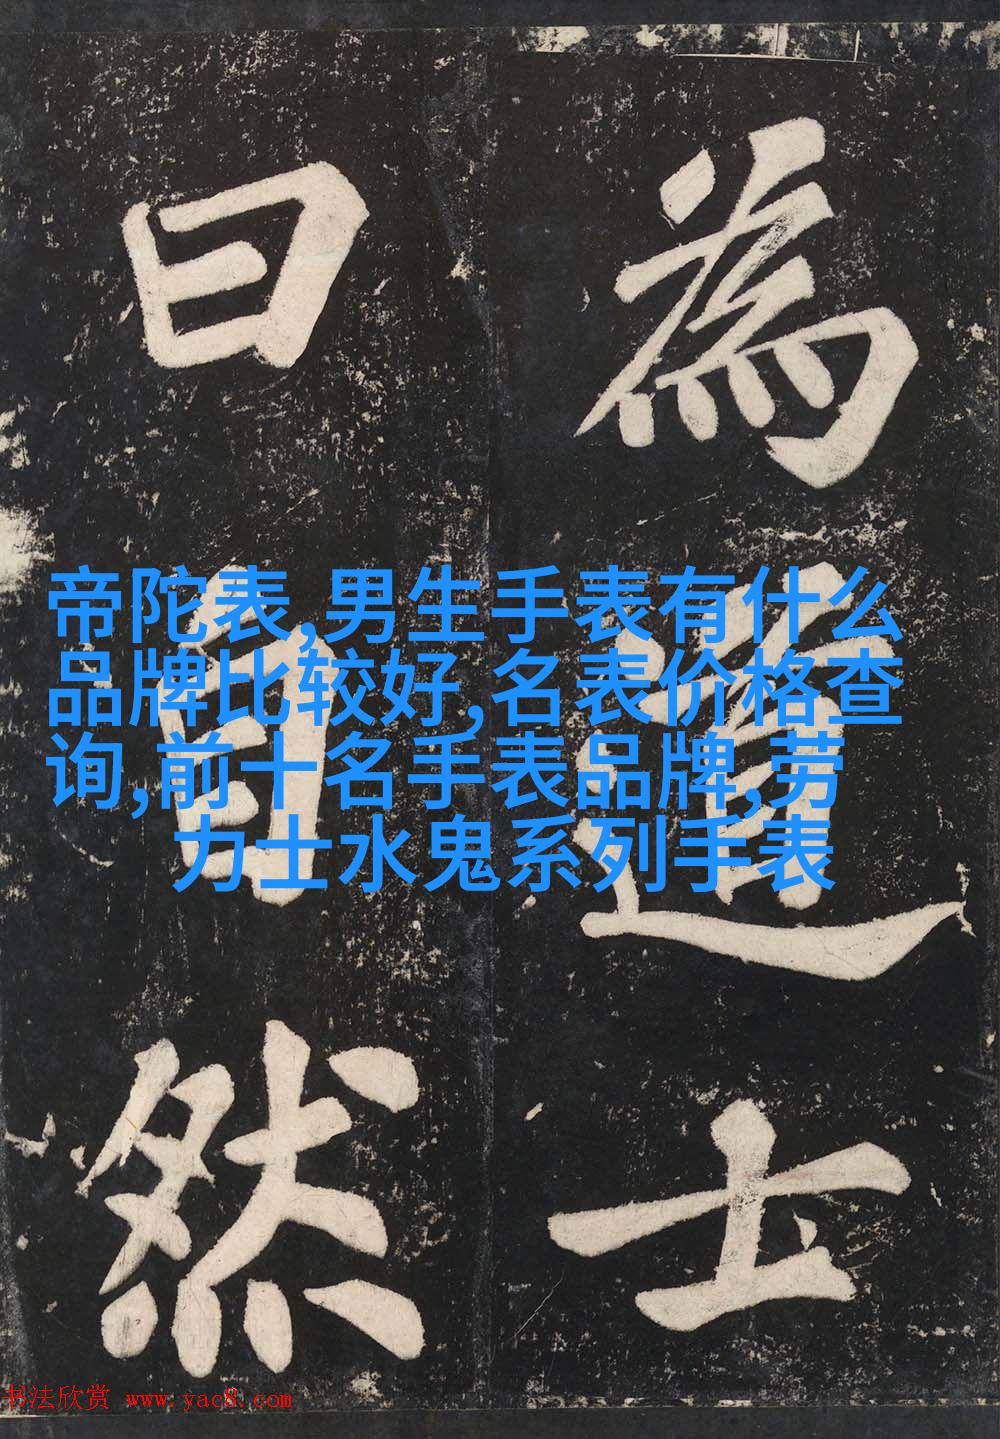 為道士
曰自然
帝陀表,男生手表有什么
品牌比较好,名表价格查
询,前十名手表品牌,劳
力士水鬼系列手表
书法欣赏 www.yac8.com